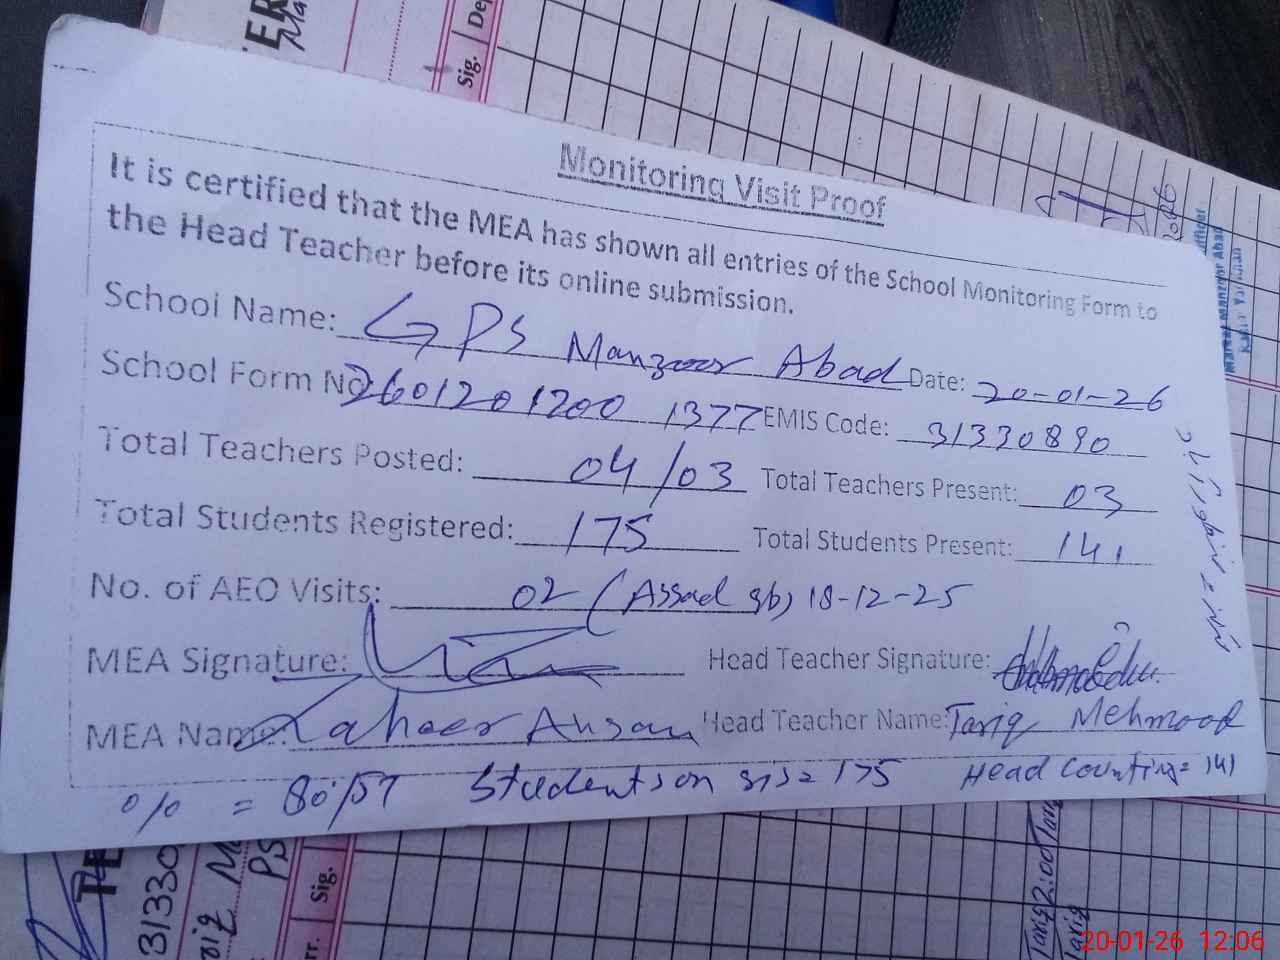 Monitoring Visit Proof
It is certified that the MEA has shown all entries of the School Monitoring Form to
the Head Teacher before its online submission.
School Name: GPS Manzoor Abad Date: 20-01-26
School Form No 2601201200 1377 EMIS Code: 31330890
Total Teachers Posted: 04/03 Total Teachers Present: 03
Total Students Registered: 175 Total Students Present: 141
No. of AEO Visits: 02 (Assad sb) 18-12-25
MEA Signature: Head Teacher Signature:
MEA Name: Zaheer Ahsan Head Teacher Name: Tariq Mehmood
% = 80.57 Students on sis = 175 Head Counting = 141
Sig.
Sig.
31330
PS
Tariq 2:00 Tariq
Tariq
20-01-26 12:06